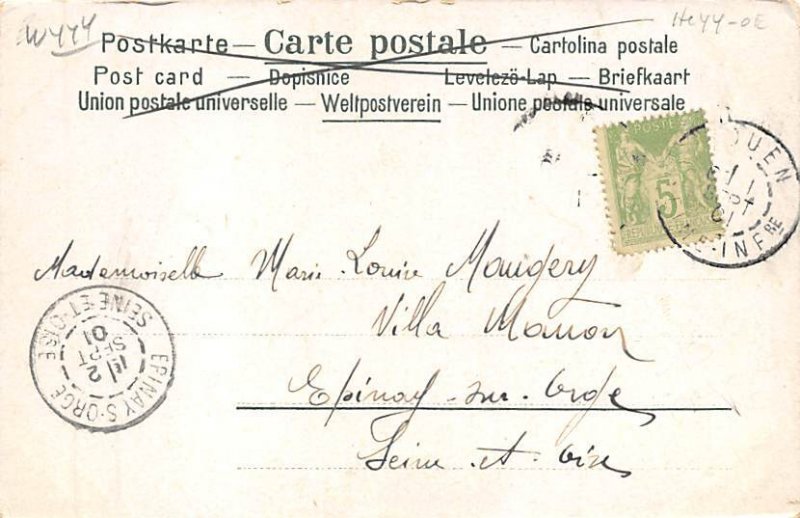 W444
He44-OE
Postkarte — Carte postale — Cartolina postale
Post card — Dopisnice Levelezö-Lap — Briefkaart
Union postale universelle — Weltpostverein — Unione postale universale
POSTE
5
ROUEN
SEPT
01
SEINE INFRE
Mademoiselle Marie-Louise Maugery
Villa Manon
Epinay-sur-Orge
Seine-et-Oise
EPINAY-S-ORGE
SEINE-ET-OISE
2
SEPT
01